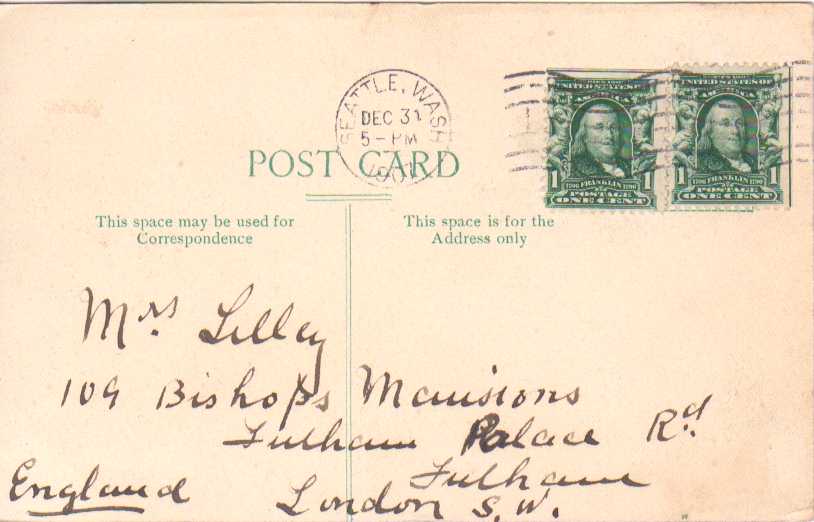 SEATTLE, WASH
DEC 31
5-PM
UNITED STATES OF AMERICA
1706 FRANKLIN 1790
POSTAGE
1 ONE CENT 1
UNITED STATES OF AMERICA
1706 FRANKLIN 1790
POSTAGE
1 ONE CENT 1
POST CARD
This space may be used for
Correspondence
This space is for the
Address only
Mrs Lilley
109 Bishops Mansions
Fulham Palace Rd.
Fulham
England London S.W.